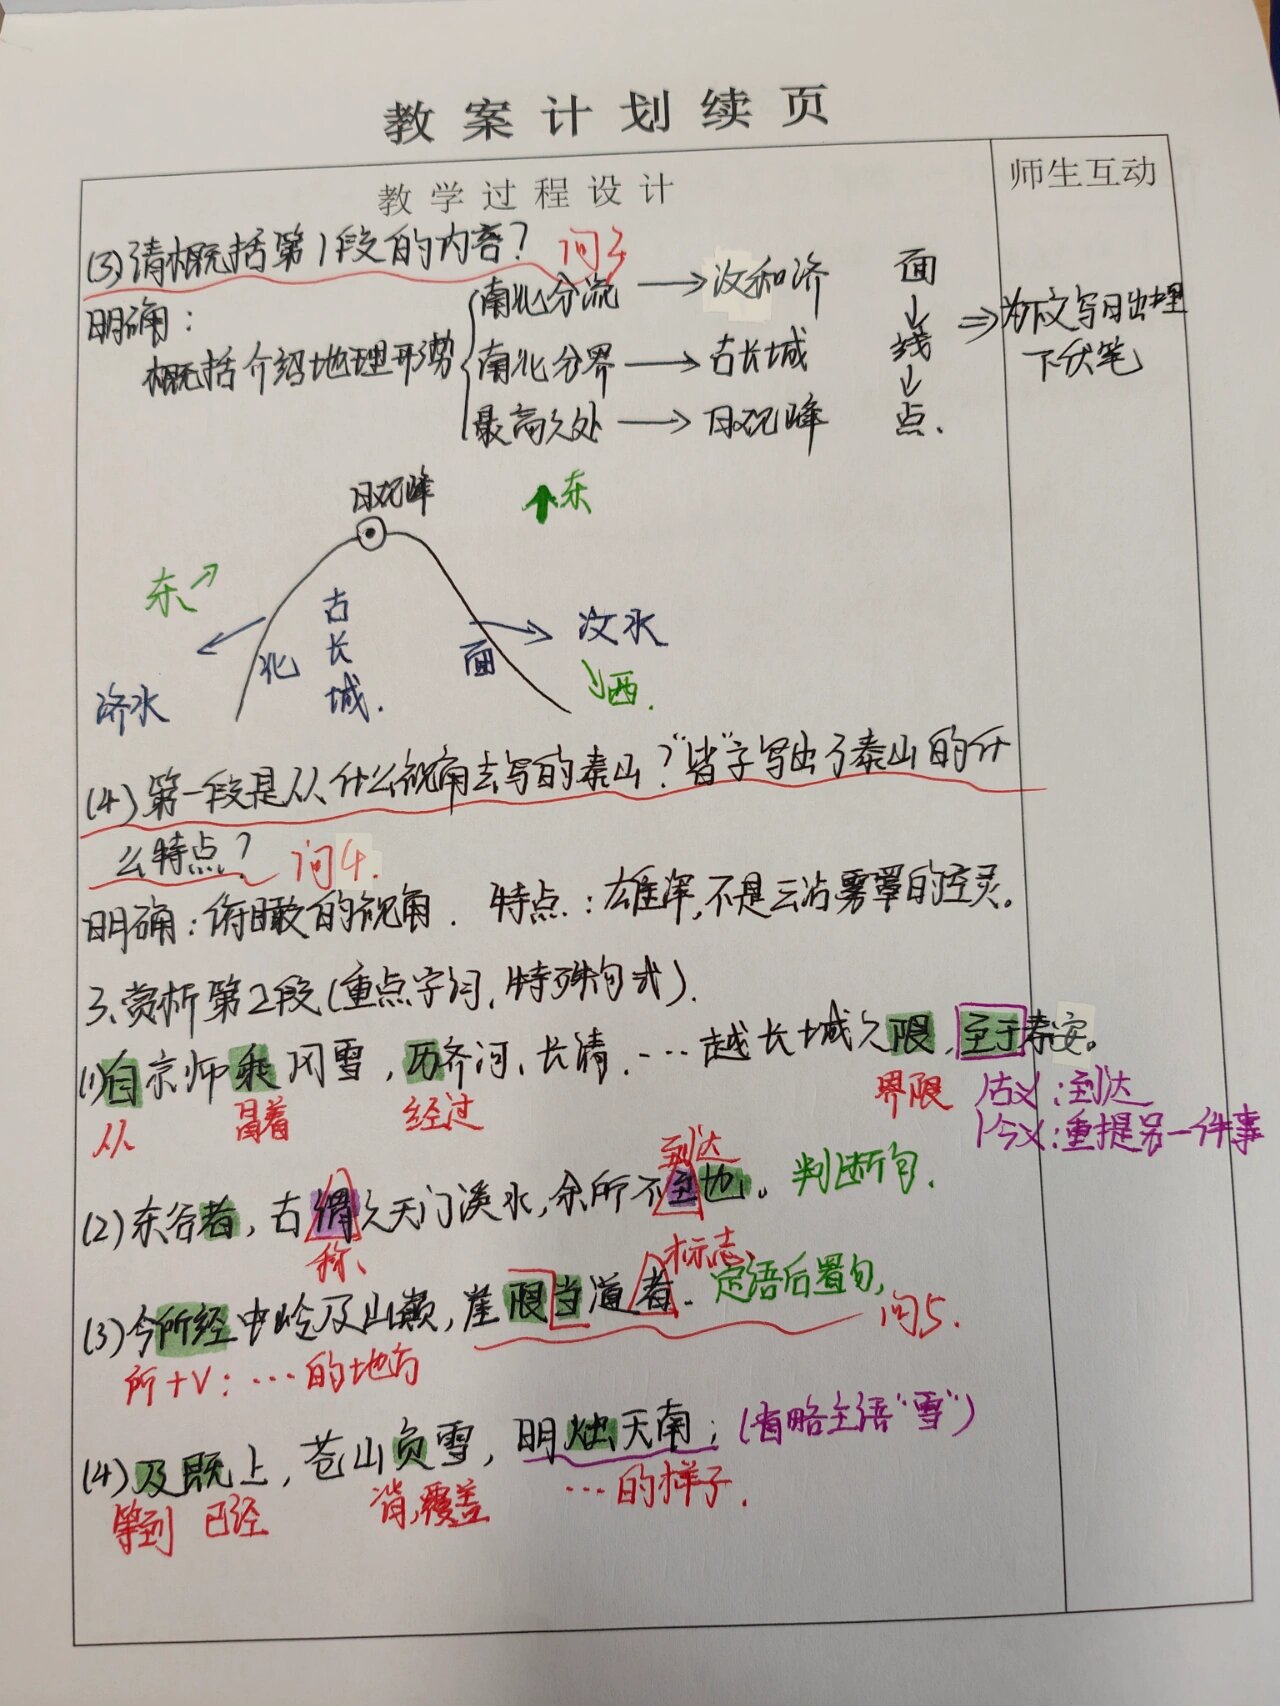 教案计划续页
教学过程设计
师生互动
(3)请概括第1段的内容？ 问3
明确：
概括介绍地理形势
南北分流 → 汶和济
南北分界 → 古长城
最高之处 → 日观峰
面
↓
线
↓
点.
⇒为下文写日出埋
下伏笔
日观峰
↑东
东↗
古长城.
北
面
汶水
济水
↘西.
(4)第一段是从什么视角去写的泰山？"皆"字写出了泰山的什
么特点？ 问4.
明确：俯瞰的视角. 特点：雄浑,不是云沾雾罩的空灵。
3、赏析第2段(重点字词、特殊句式).
(1)自京师乘风雪，历齐河、长清，…越长城之限，至于泰安。
从 冒着 经过 界限 古义：到达
今义：重提另一件事
到达
(2)东谷者，古谓之天门溪水,余所不至也。 判断句.
称、 标志、
(3)今所经中岭及山巅，崖限当道者. 定语后置句, 问5.
所+V：…的地方
(4)及既上，苍山负雪，明烛天南；(省略主语"雪")
等到 已经 背,覆盖 …的样子.